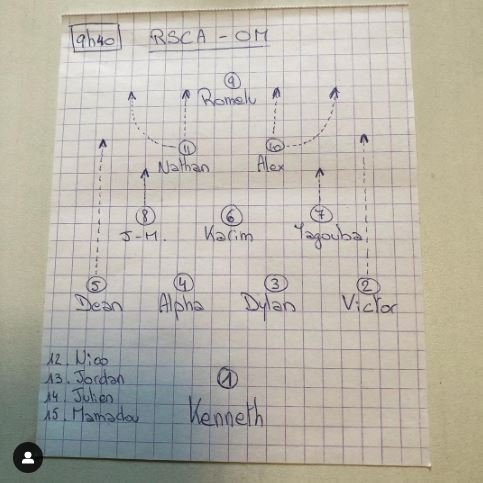 9h40 RSCA - OM
9
Romelu
11 10
Nathan Alex
8 6 7
J-M. Karim Yagouba
5 4 3 2
Dean Alpha Dylan Victor
12. Nico
13. Jordan
14. Julien
15. Mamadou
1
Kenneth